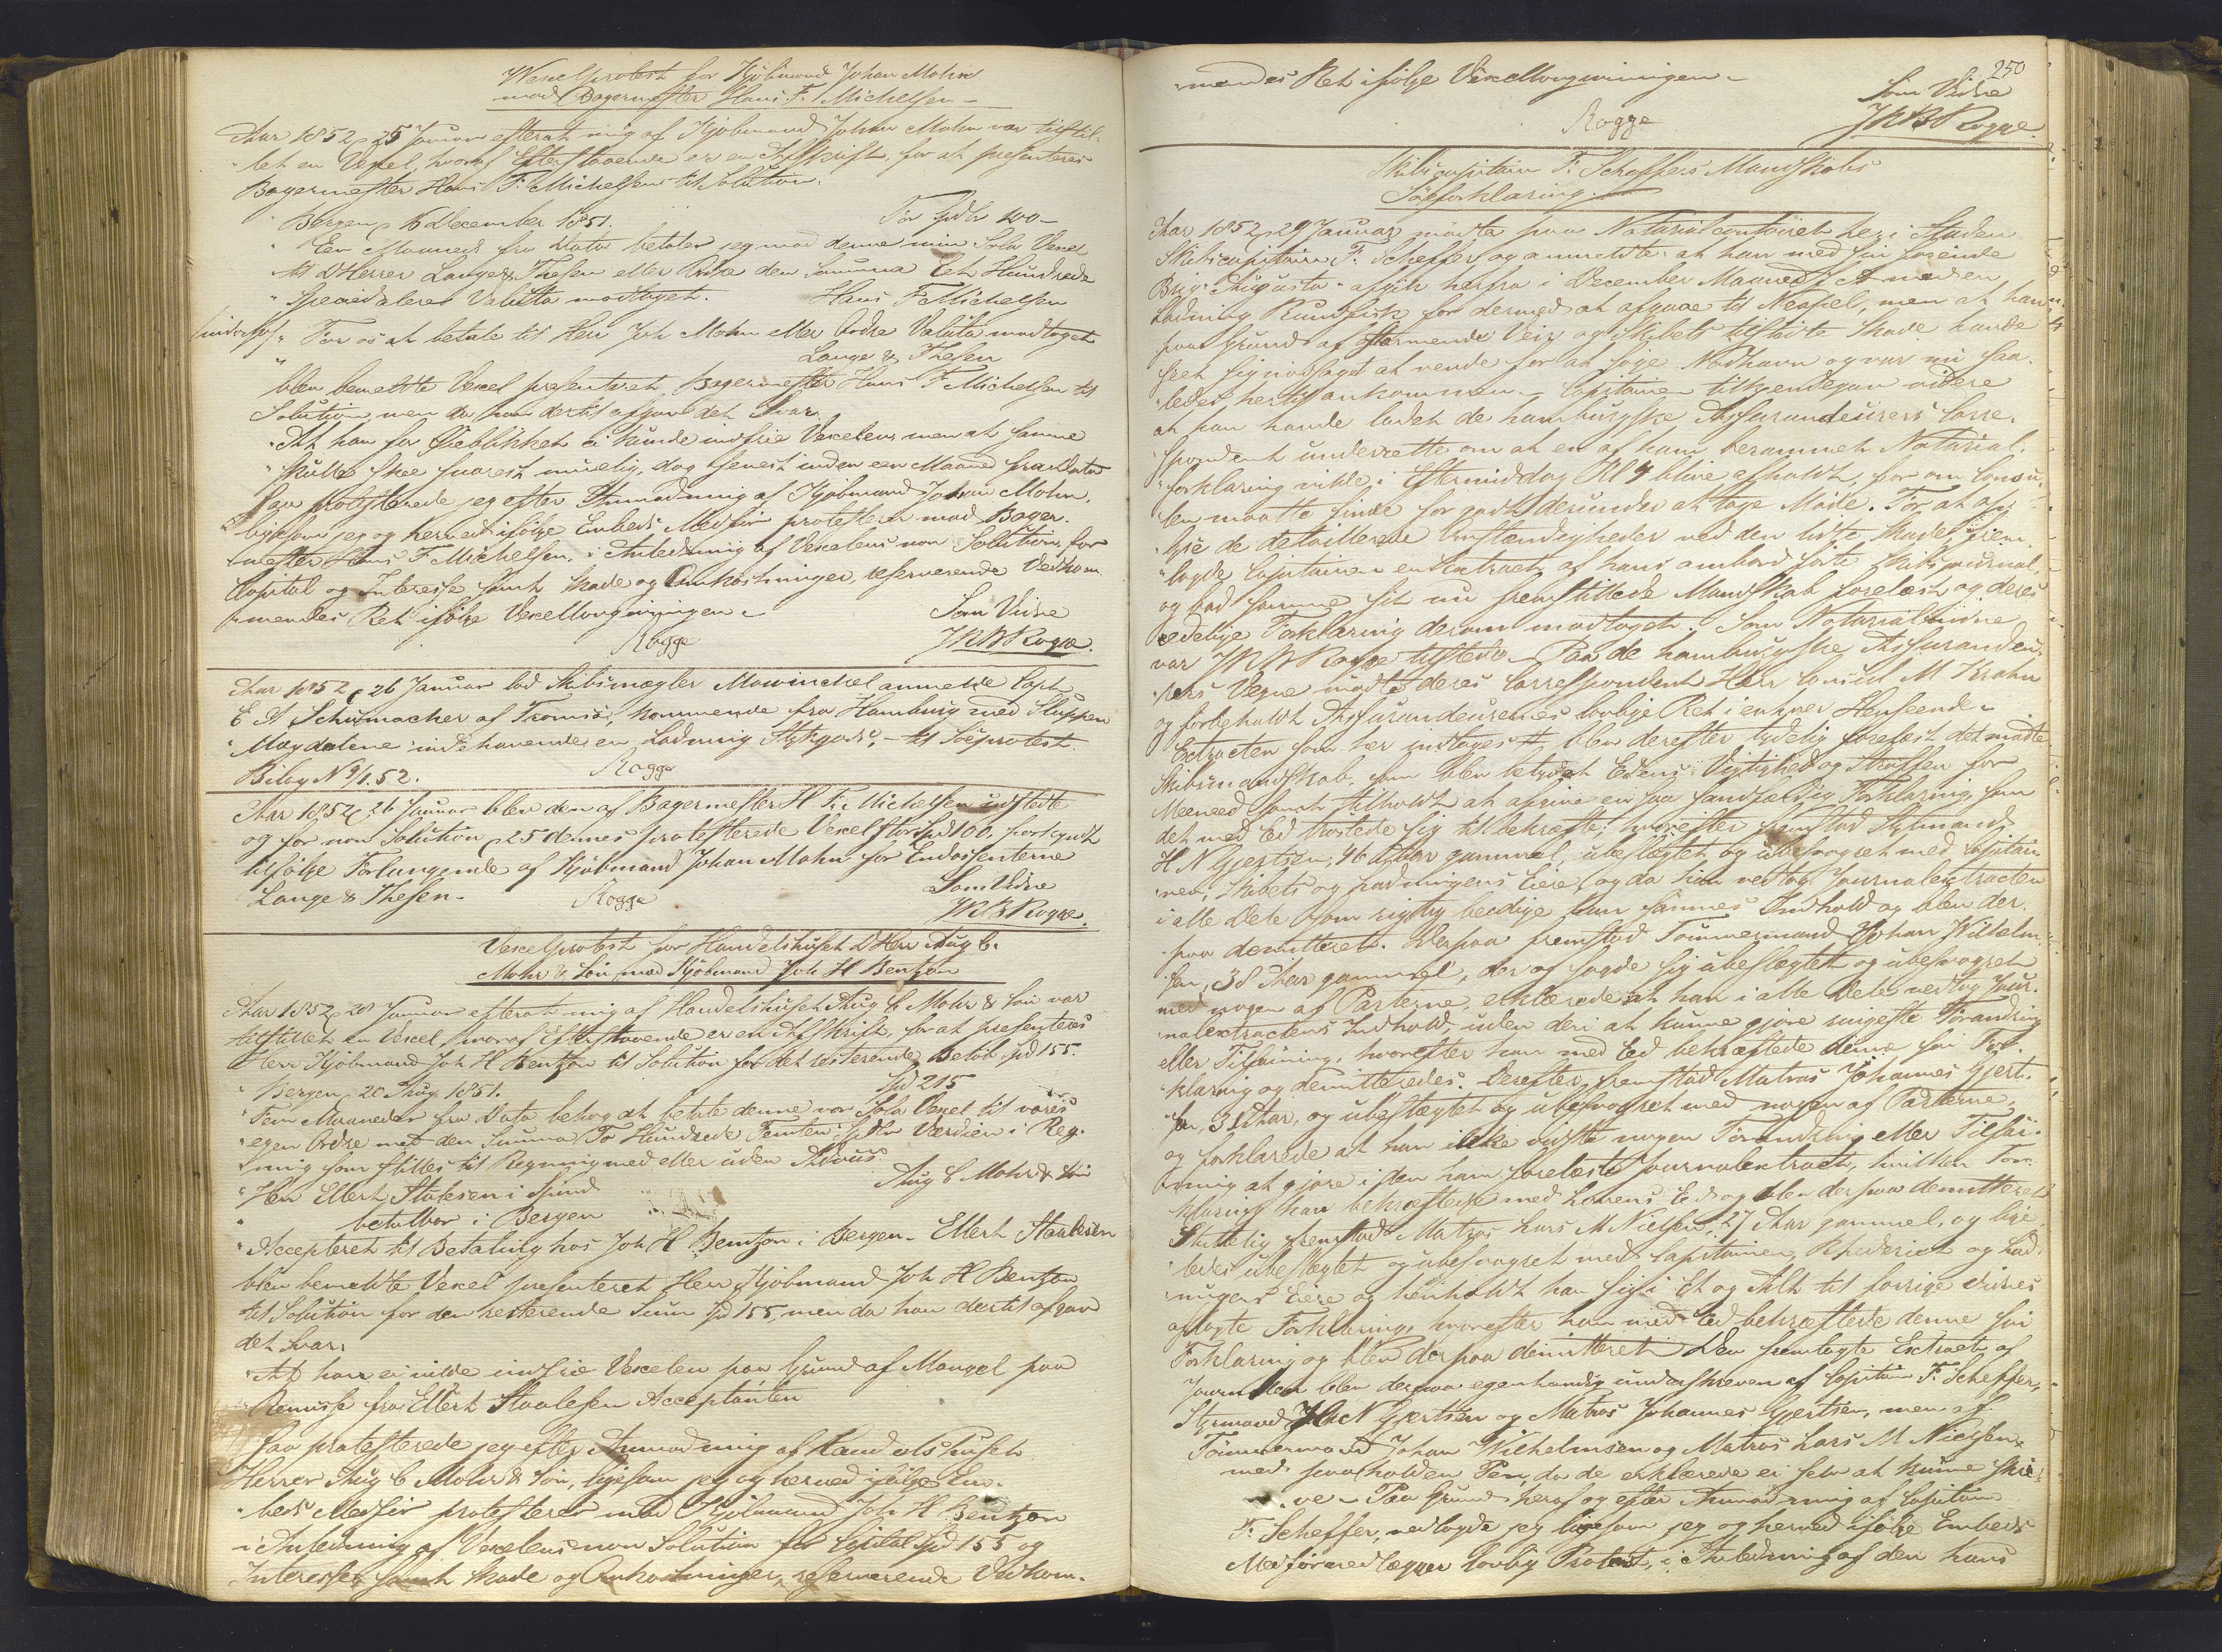 Wexelprotest for Kjøbmand Johan Mohn
mod Bagermester Hans F. Michelsen –
Aar 1852 25 Januar efterat mig af Kjøbmand Johan Mohn var tilstil-
let en Vexel, hvoraf Efterstaaende er en Afskrift, for at presenteres
Bagermester Hans F. Michelsen til Solution.
Bergen 16 December 1851. For Spdlr 100 –
"Een Maaned fra Dato betaler jeg mod denne min Sola Vexel
til DHerrer Lange & Thesen eller Ordre den Summa Eet Hundrede
"Speciedaler Valuta modtaget. Hans F Michelsen
" For os at betale til Herr Joh Mohn eller Ordre Valuta modtaget
" Lange & Thesen
blev bemeldte Vexel presenteret Bagermester Hans F Michelsen til
Solution, men da han dertil afgav det Svar,
"At han for Øieblikket ei kunde indfrie Vexelen, men at samme
"skulle skee snarest muelig, dog senest inden een Maaned fra Dato
saa protesterede jeg efter Anmodning af Kjøbmand Johan Mohn,
ligesom jeg og herved ifølge Embeds Medfør protesterer mod Bager-
mester Hans F Michelsen, i Anledning af Vexelens non Solution, for
Capital og Interesse samt Skade og Omkostninger, reserverende Vedkom-
mendes Ret ifølge Vexellovgivningen –
Som Vidne
Rogge JRB Rogge.
Aar 1852, 26 Januar lod Skibsmægler Mowinckel anmelde Capt
E A Schumacher af Tromsø, kommende fra Hamburg med Sluppen
"Magdalene" indehavende en Ladning Stykgods, – til Søeprotest.
Bilag N 9/1.52. Rogge
Aar 1852, 26 Januar blev den af Bagermester H. F. Michelsen udstedte
og for non Solution 25 dennes protesterede Vexel stor Spd 100. forkyndt
tilfølge Forlangende af Kjøbmand Johan Mohn for Endossenterne
Lange & Thesen – Rogge Som Vidne
JRB Rogge.
Vexelprotest for Handelshuset DHerr Aug C.
Mohr & Søn, mod Kjøbmand Joh H Bentzon
Aar 1852, 28 Januar efterat mig af Handelshuset Aug C Mohr & Søn var
tilstillet en Vexel hvoraf Efterstaaende er en Afskrift, for at presenteres
Herr Kjøbmand Joh H Bentzon til Solution for det resterende Beløb Spd 155.
" Bergen 20 Aug 1851. Spd 215
"Fem Maaneder fra Dato behag at betale denne vor Sola Vexel til vores
"egen Ordre med den Summa To Hundrede Femten Spdlr Værdien i Reg-
"ning som stilles til Regning med eller uden Advis
"Herr Ellert Stalesen i Spind Aug C Mohr & Søn
" betalbar i Bergen
"Accepteret til Betaling hos Joh H Bentzon i Bergen – Ellert Staalesen
blev bemeldte Vexel presenteret Herr Kjøbmand Joh H Bentzon
til Solution for den resterende Sum Spd 155, men da han dertil afgav
det Svar,
"At han ei vilde indfrie Vexelen paa Grund af Mangel paa
"Remisse fra Ellert Staalesen Acceptanten
saa protesterede jeg efter Anmodning af Handelshuset
Herrer Aug C Mohr & Søn, ligesom jeg og herved ifølge Em-
beds Medfør protesterer mod Kjøbmand Joh H Bentzon
i Anledning af Vexelens non Solution for Capital Spd 155 og
Interesser samt Skade og Omkostninger, reserverende Vedkom-
250
mendes Ret ifølge Vexellovgivningen –
Som Vidne
Rogge JRB Rogge.
Skibscapitain F. Scheffers Mandskabs
Søeforklaring.
Aar 1852, 29 Januar mødte paa Notarialcontoiret her i Staden
Skibscapitain F. Scheffer og anmeldte at han med sin førende
Brig "Augusta" afgik herfra i December Maaned f. A. med en
Ladning Rundfisk for dermed at afgaae til Neapel, men at han
paa Grund af stormende Veir og Skibets tilføiede Skade havde
seet sig nødsaget at vende for at søge Nødhavn og var nu saa-
ledes hertil ankommen. – Capitainen tilkjendegav videre
at han havde ladet de hamburgske Assurandeurers Corre-
spondent underrette om at en af ham berammet Notarial-
forklaring vilde i Eftermiddag Kl 4 blive afholdt, for om Consu-
len maatte finde for godt derunder at tage Møde. For at op-
lyse de detaillerede Omstændigheder ved den lidte Skade, frem-
lagde Capitainen en Extract af hans ombord førte Skibsjournal,
og bad samme sit nu fremstillede Mandskab forelæst og deres
eedelige Forklaring derom modtaget. Som Notarialvidne
var JRB Rogge tilstede – Paa de hamburgske Assurandeu-
rers Vegne mødte deres Correspondent Herr Consul M Krohn
og forbeholdt Assurandeurernes lovlige Ret i enhver Henseende –
Extracten som her indtages #, blev derefter tydelig forelæst det mødte
Skibsmandskab, som blev betydet Edens Vigtighed og Straffen for
Meeneed samt tilholdt at afgive en saa sandfærdig Forklaring som
det med Ed trøstede sig til bekræfte; hvorefter fremstod Styrmand
H N Gjertsen, 46 Aar gammel, ubeslægtet og ubesvogret med Capitai-
nen, Skibets og Ladningens Eiere og da han vedtog Journalextracten
i alle Dele som rigtig beedige han sammes Indhold og blev der-
paa demitteret. Derpaa fremstod Tømmermand Johan Wilhelm-
sen, 38 Aar gammel, der og sagde sig ubeslægtet og ubesvogret
med nogen af Parterne, erklærede at han i alle Dele vedtog Jour-
nalextractens Indhold, uden deri at kunne gjøre ringeste Forandring
eller Tilføining, hvorefter han med Eed bekræftede denne sin For-
klaring og demitteredes. Derefter fremstod Matros Johannes Gjert-
sen, 31 Aar, og ubeslægtet og ubesvogret med nogen af Parterne,
og forklarede at han ikke vidste nogen Forandring eller Tilføi-
ning at gjøre i den ham forelæste Journalextract, hvilken For-
klaring han bekræftede med Lovens Ed og blev derpaa demitteret
Sluttelig fremstod Matros Lars M Nielsen, 27 Aar gammel, og lige-
ledes ubeslægtet og ubesvogret med Capitainen, Rhederiet og Lad-
ningens Eiere og henholdt han sig i Et og Alt til forrige Vidnes
aflagte Forklaring, hvorefter han med Ed bekræftede denne sin
Forklaring og blev derpaa demitteret Den fremlagte Extract af
Journalen blev derpaa egenhændig underskreven af Capitain F. Scheffer,
Styrmand H N Gjertsen og Matros Johannes Gjertsen, men af
Tømmermand Johan Wilhelmsen og Matros Lars M Nielsen
med paaholden Pen, da de erklærede ei selv at kunne skri-
ve – Paa Grund heraf og efter Anmodning af Capitain
F. Scheffer, nedlagde jeg ligesom jeg og herved ifølge Embeds
Medfør nedlægger lovlig Protest, i Anledning af den hans